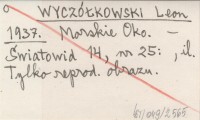 o WYCZÓŁKOWSKI Leon
1937. Morskie Oko. –
Światowid 14, nr 25: , il.
Tylko reprod. obrazu.
61/049/2565